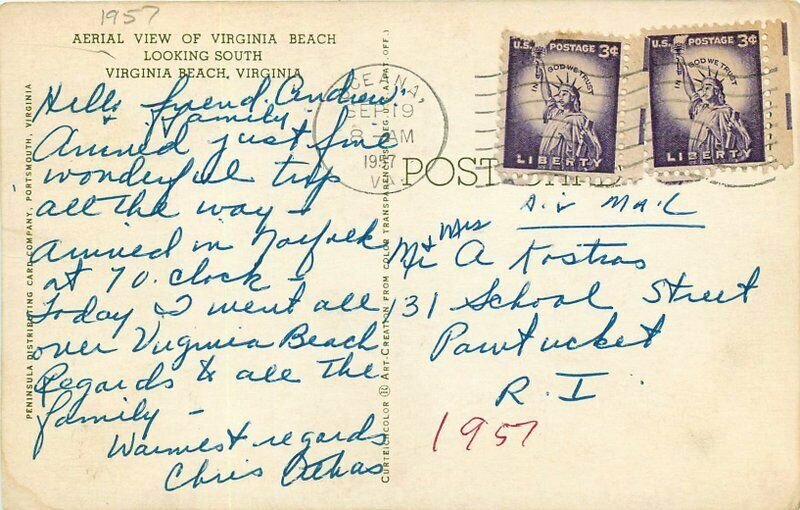 1957
AERIAL VIEW OF VIRGINIA BEACH
LOOKING SOUTH
VIRGINIA BEACH, VIRGINIA
Hello friend Andrew.
& family.
Arrived just fine
wonderful trip
all the way -
Arrived in Norfolk
at 7 O. clock -
Today I went all
over Virginia Beach
Regards to all the
family -
Warmest regards
Chris
PENINSULA DISTRIBUTING CARD COMPANY, PORTSMOUTH, VIRGINIA
CURTEICHCOLOR ® ART-CREATION FROM COLOR TRANSPARENCY (REG. U.S.A. PAT. OFF.)
OCEANA,
SEP 19
8 - AM
1957
VA.
POST CARD
U.S. POSTAGE 3¢
IN GOD WE TRUST
LIBERTY
U.S. POSTAGE 3¢
IN GOD WE TRUST
LIBERTY
Air Mail
Mr & Mrs A Kostras
131 School Street
Pawtucket
R. I.
1957